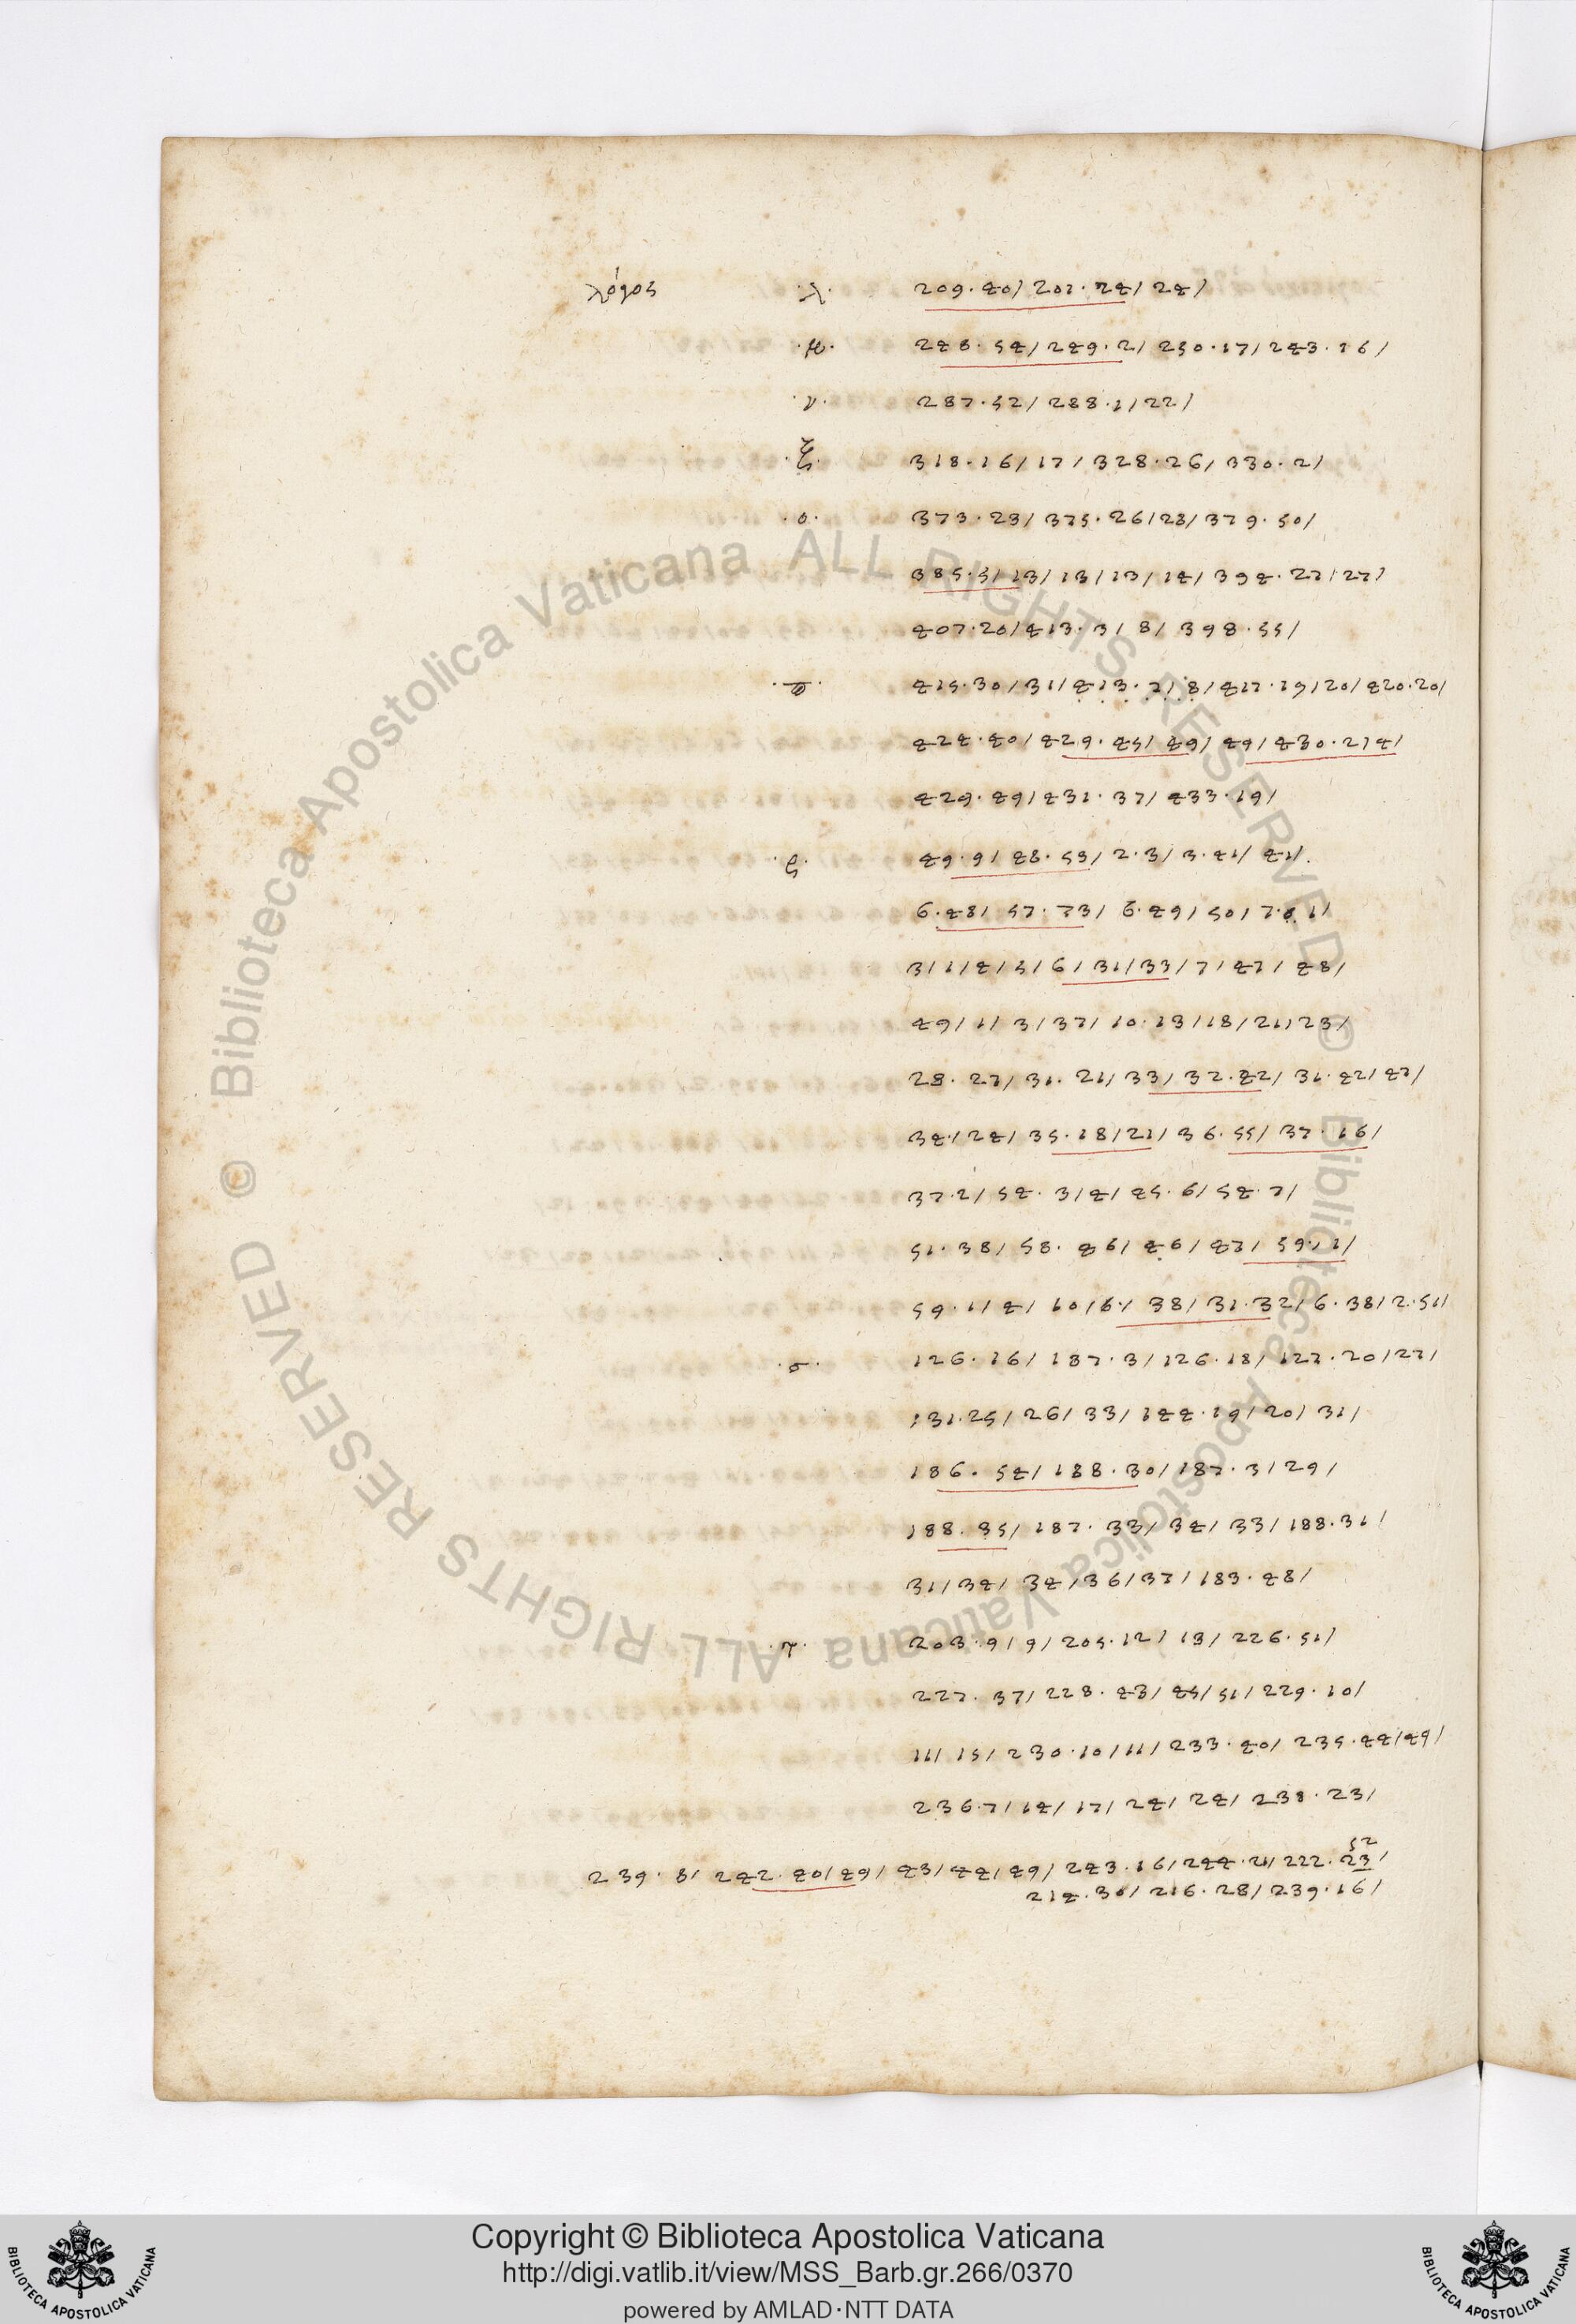 λόγος ·λ· 209·40/ 201·24/ 24/
·μ· 248·54/ 249·2/ 250·17/ 243·16/
·ν· 287·52/ 288·1/ 22/
·ξ· 318·16/ 17/ 328·26/ 330·2/
·ο· 373·23/ 375·26/ 28/ 379·50/
385·5/ 13/ 13/ 13/ 14/ 394·27/ 27/
407·20/ 413·3/ 8/ 398·55/
·π· 415·30/ 31/ 413·7/ 8/ 417·19/ 20/ 420·20/
424·40/ 429·45/ 49/ 49/ 430·2/ 4/
429·49/ 431·37/ 433·19/
·ρ· 49·9/ 48·53/ 2·3/ 3·41/ 41/.
6·48/ 57·73/ 6·49/ 50/ 7·8 1/
3/ 1/ 4/ 5/ 6/ 31/ 33/ 7/ 47/ 48/
49/ 1/ 3/ 37/ 10·13/ 18/ 21/ 23/
28·27/ 31·21/ 33/ 32·42/ 31·42/ 47/
34/ 24/ 35·18/ 21/ 36·55/ 37·16/
37·2/ 54·3/ 4/ 45·6/ 54·7/
51·38/ 58·46/ 46/ 47/ 59·1/
59·1/ 4/ 10/ 6·/ 38/ 31·32/ 6·38/ 2·51/
·σ· 126·16/ 187·3/ 126·18/ 127·20/ 27/
131·25/ 26/ 33/ 144·19/ 20/ 31/
186·54/ 188·30/ 187·3/ 29/
188·35/ 187·33/ 34/ 33/ 188·31/
31/ 34/ 34/ 36/ 37/ 183·48/
·τ· 203·9/ 9/ 205·12/ 13/ 226·51/
227·37/ 228·43/ 45/ 51/ 229·10/
11/ 15/ 230·10/ 11/ 233·40/ 235·44/ 49/
236·7/ 14/ 17/ 24/ 24/ 238·23/
52
239·8/ 242·40/ 49/ 43/ 44/ 49/ 243·16/ 244·21/ 222·23/
214·30/ 216·28/ 239·16/
Copyright © Biblioteca Apostolica Vaticana
http://digi.vatlib.it/view/MSS_Barb.gr.266/0370
powered by AMLAD·NTT DATA